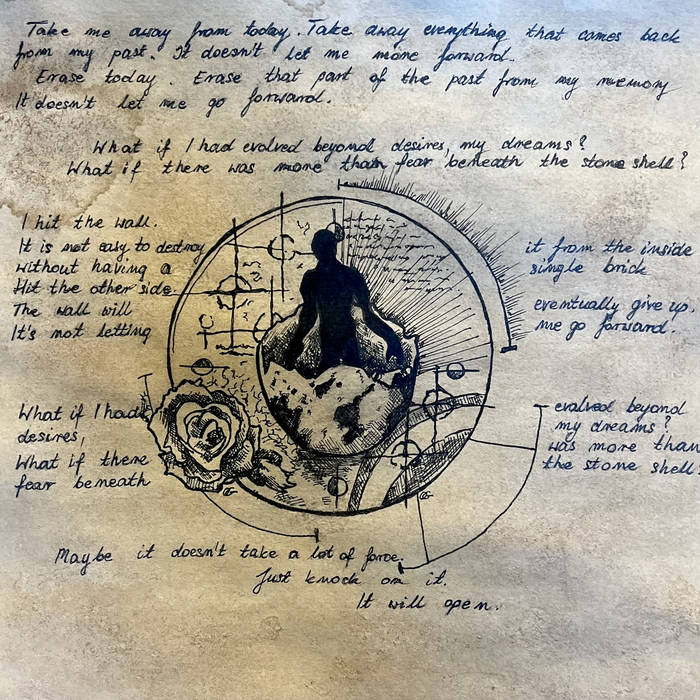 Take me away from today. Take away everything that comes back
from my past. It doesn't let me move forward.
Erase today. Erase that part of the past from my memory
It doesn't let me go forward.
What if I had evolved beyond desires, my dreams?
What if there was more than fear beneath the stone shell?
I hit the wall.
It is not easy to destroy it from the inside
without having a single brick
Hit the other side.
The wall will eventually give up.
It's not letting me go forward.
What if I had evolved beyond
desires, my dreams?
What if there was more than
fear beneath the stone shell
Maybe it doesn't take a lot of force.
Just knock on it.
It will open.